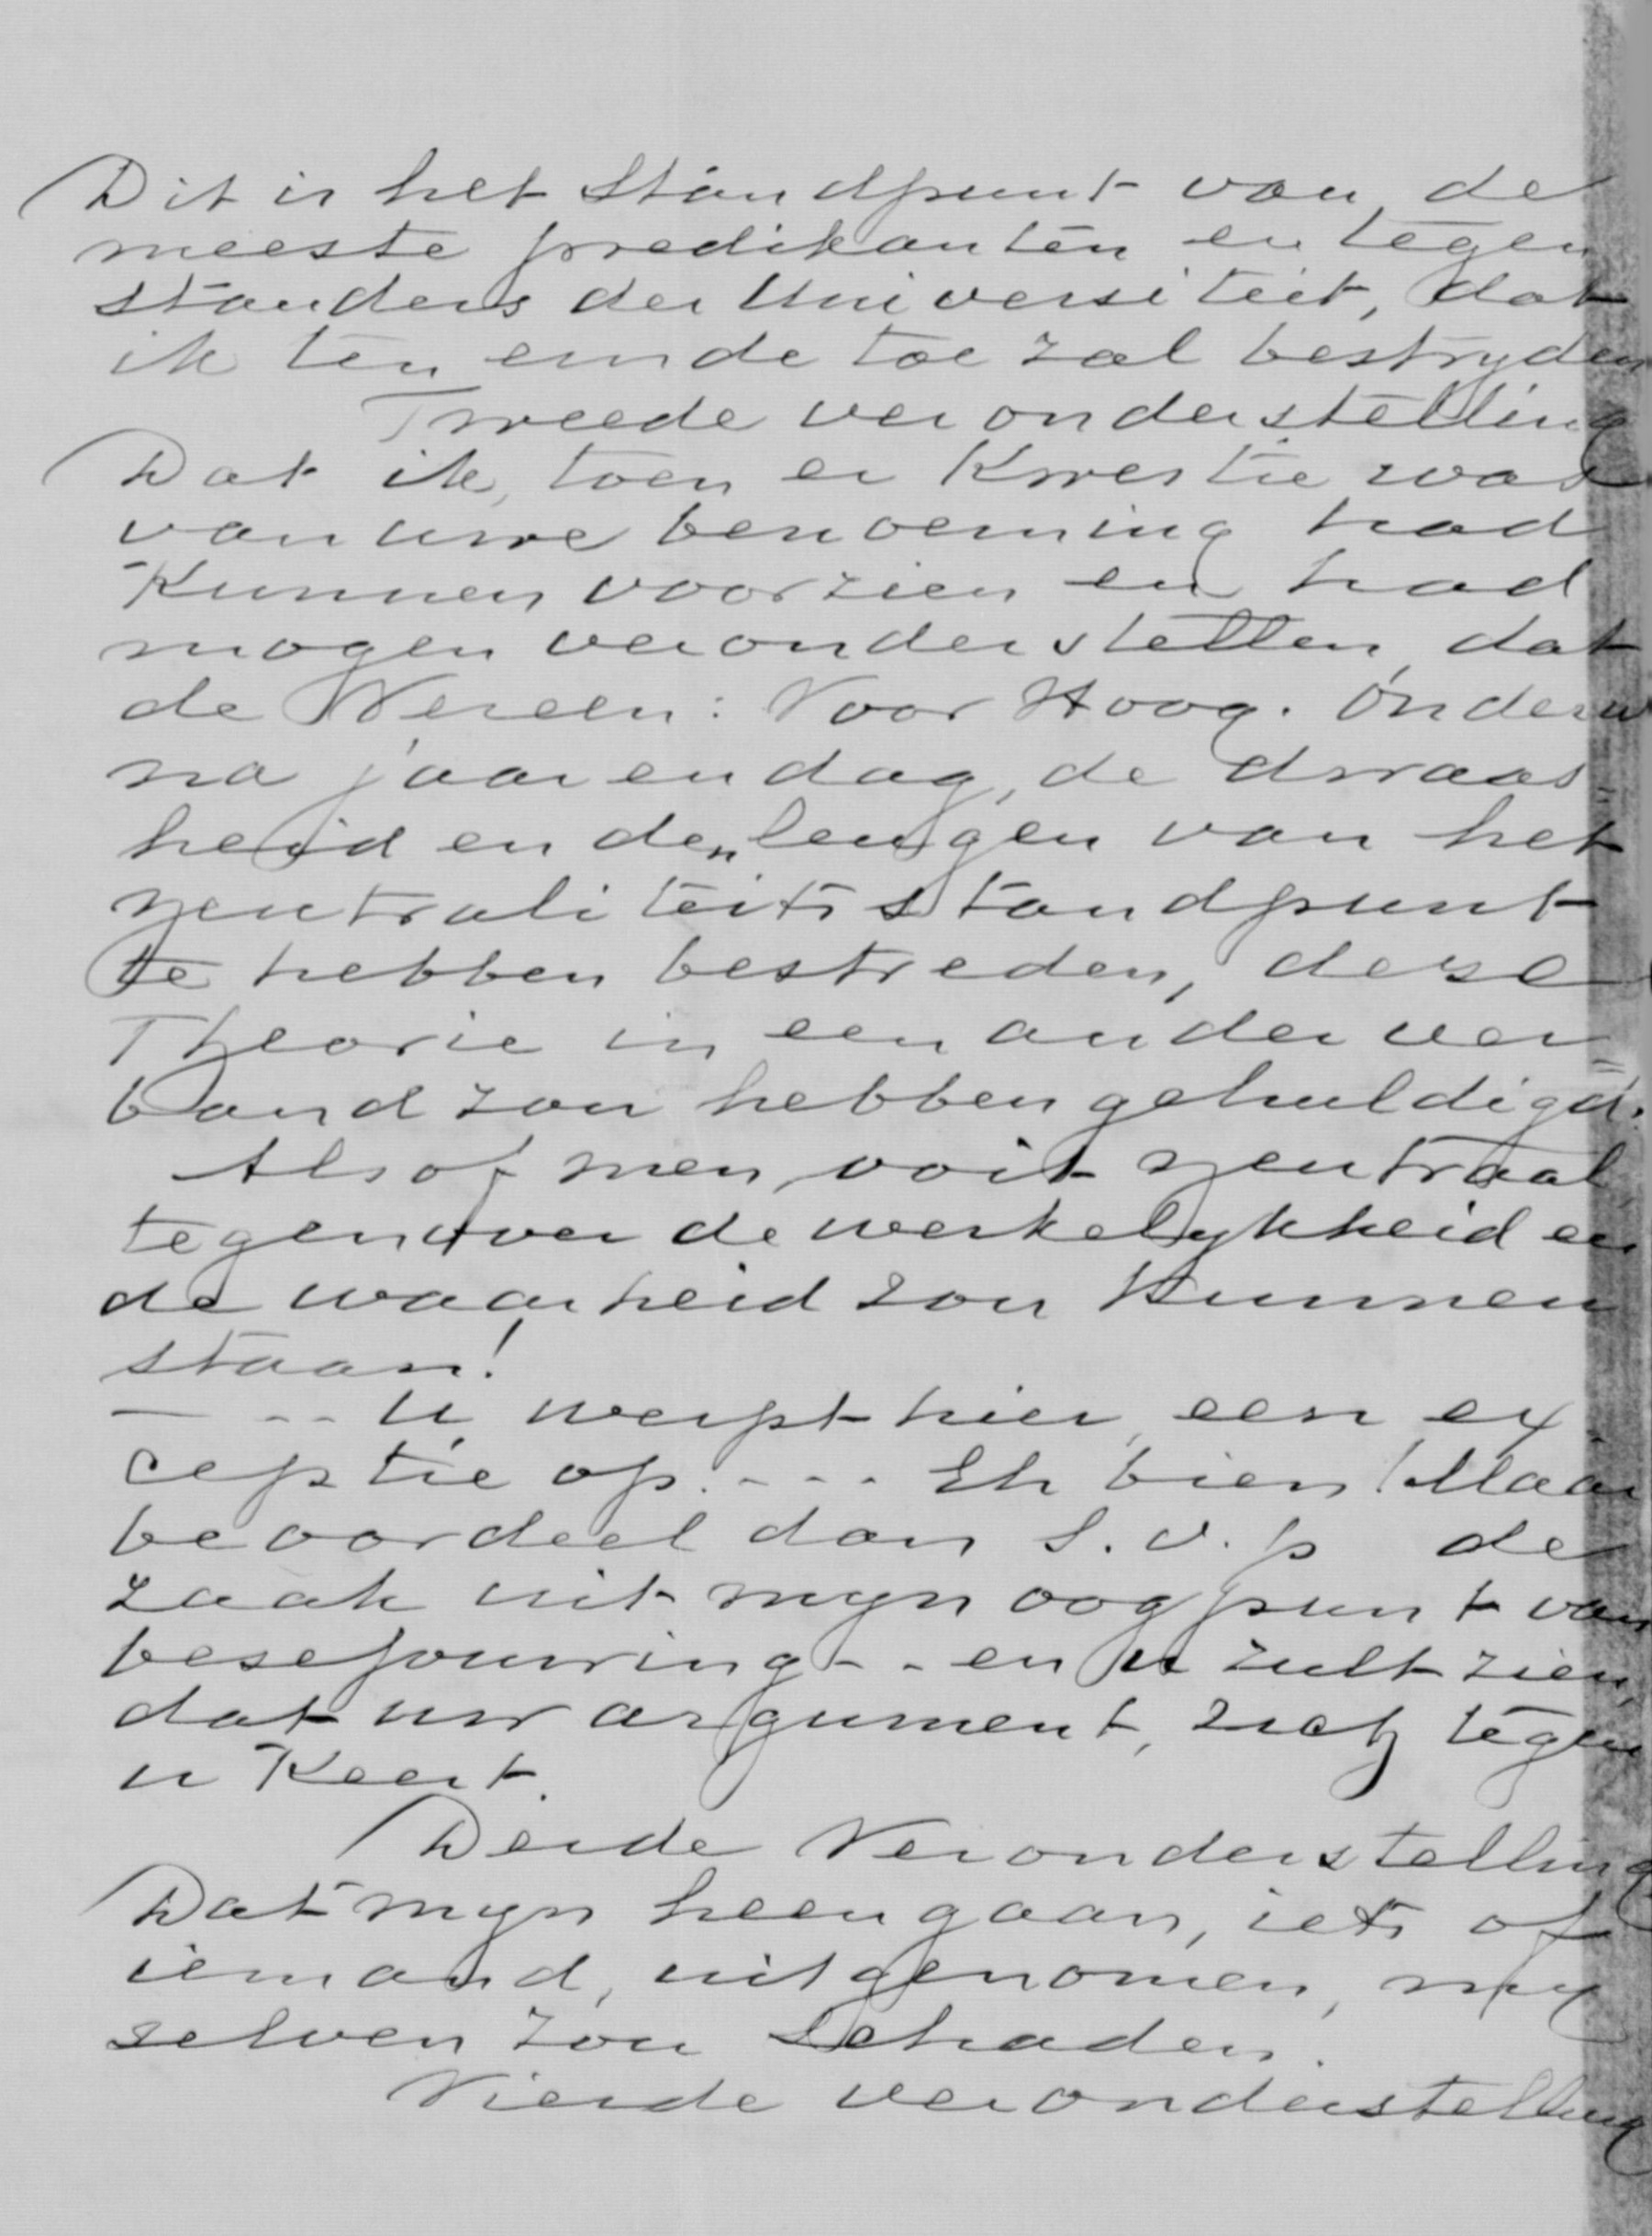 Dit is het standpunt van de
meeste predikanten en tegen
standers der Universiteit, dat
ik ten einde toe zal bestryden
Tweede veronderstelling
Dat ik, toen er Kwestie was
van uwe benoeming had
Kunnen voorzien en had
mogen veronderstellen, dat
de Vereen: Voor Hoog. Onderw
na jaar en dag, de dwaas-
heid en den leugen van het
neutraliteits standpunt
te hebben bestreden, deze
Theorie in een ander ver=
band zou hebben gehuldigd.
Alsof men, ooit neutraal,
tegenover de werkelykheid en
de waarheid zou Kunnen
staan!
— -- U, werpt hier, een ex-
ceptie op. --- Eh bien! Maar
beoordeel dan s.v.p de
zaak uit myn oogpunt van
beschouwing -- en u zult zien,
dat uw argument, zich tegen
u Keert.
Derde Veronderstelling
Dat myn heengaan, iets of
iemand, uitgenomen, my
zelven zou schaden.
Vierde veronderstelling